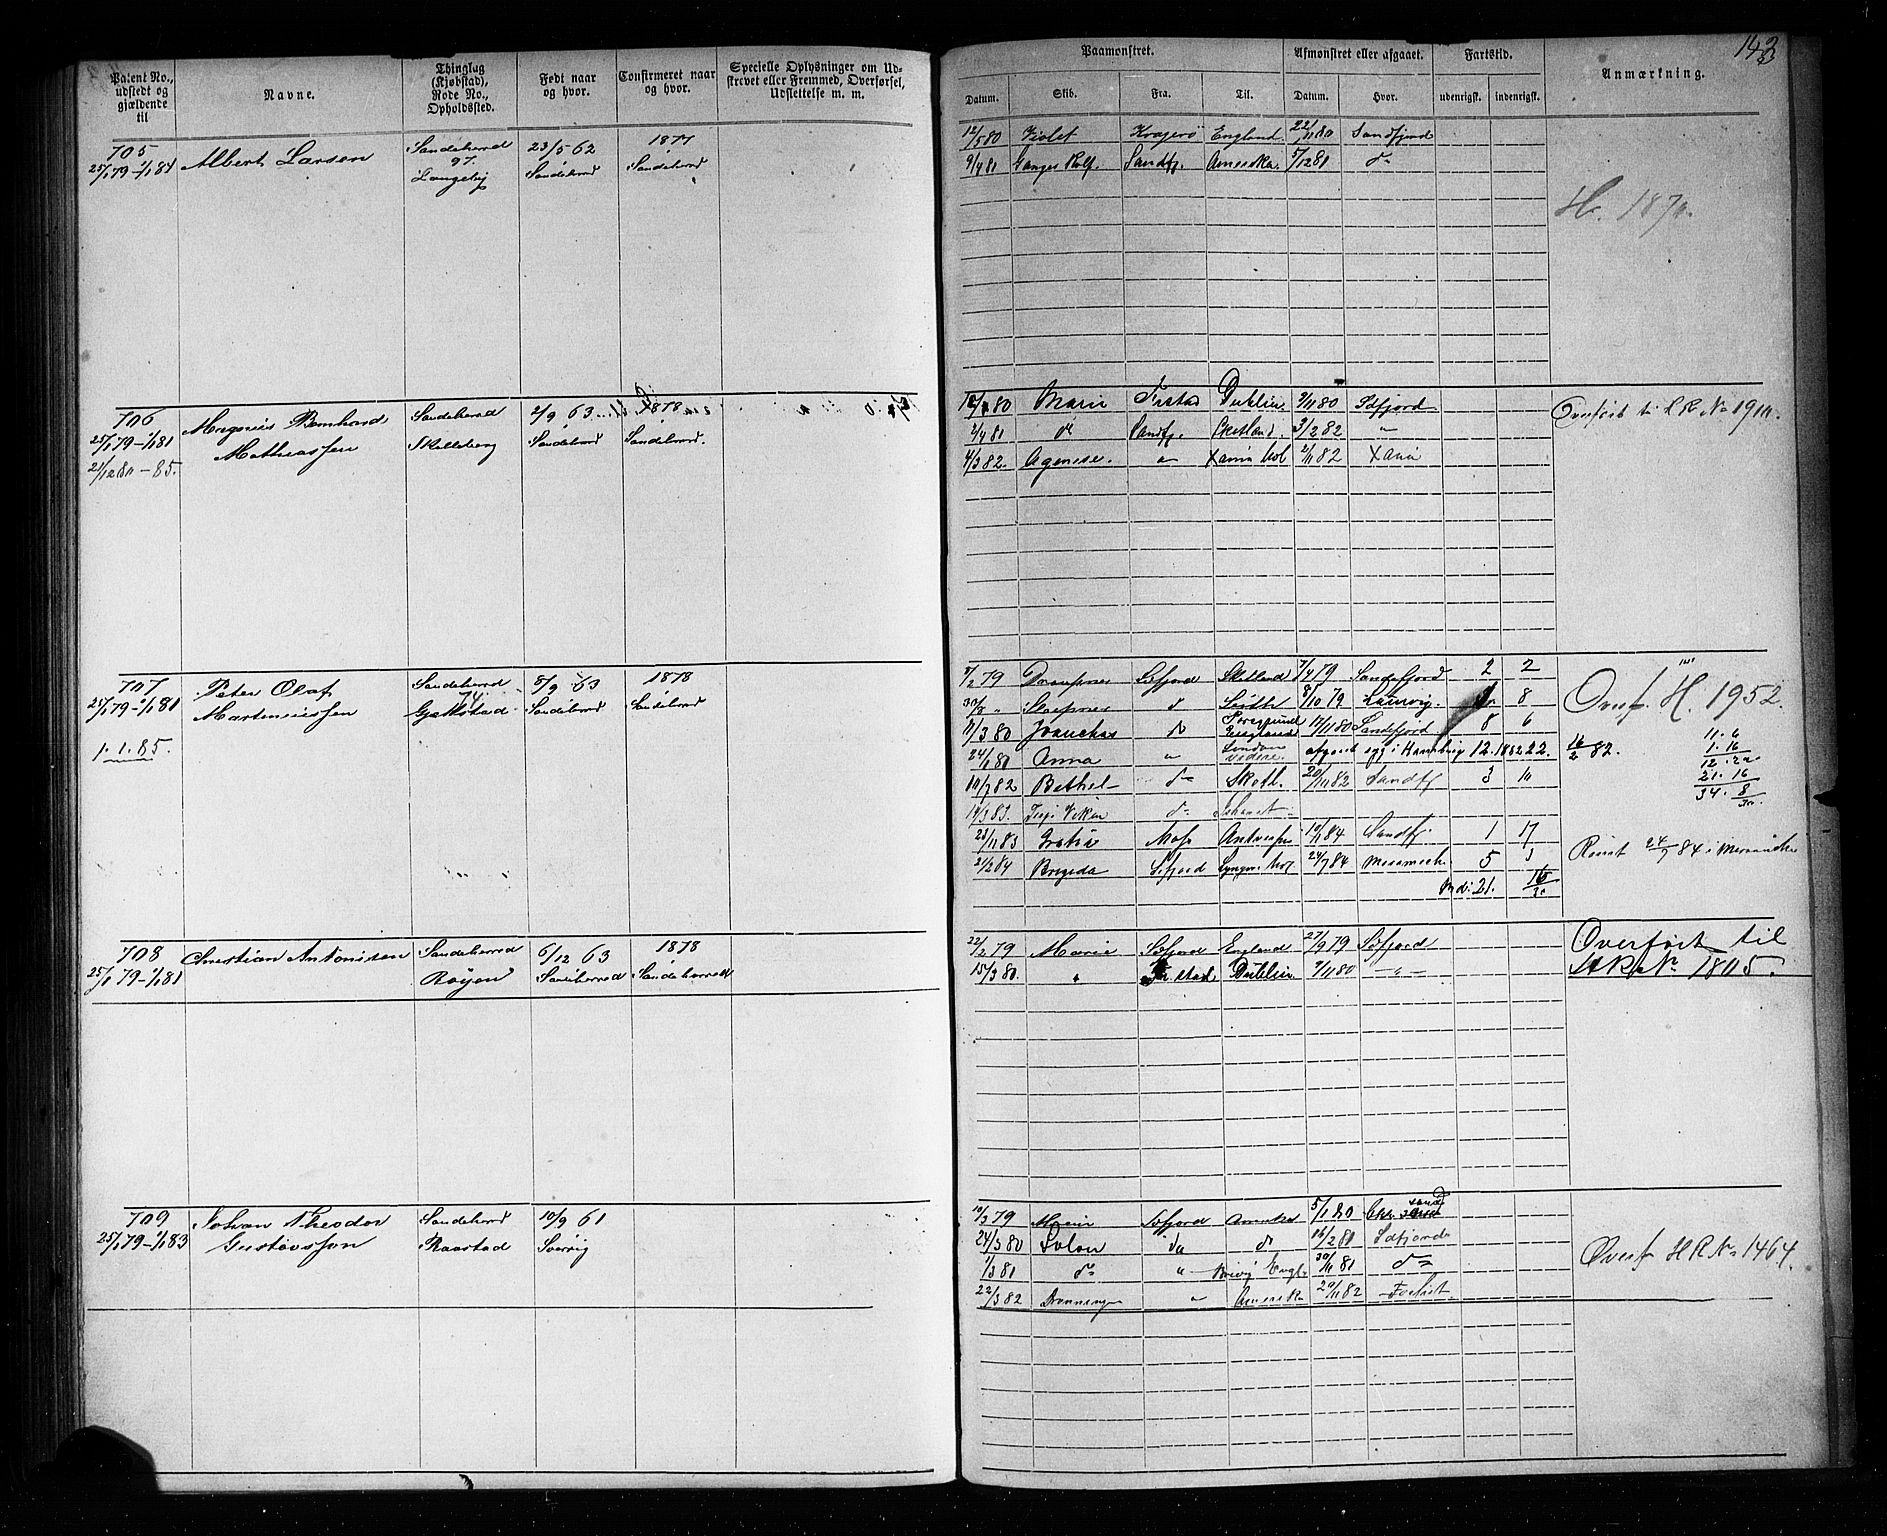 143
Patent No., udstedt og gjældende til
Navne.
Thinglag (Kjøbstad), Rode No., Opholdssted.
Født naar og hvor.
Confirmeret naar og hvor.
Specielle Oplysninger om Udskrevet eller Fremmed, Overførsel, Udslettelse m. m.
Paamønstret.
Afmønstret eller afgaaet.
Fartstid.
Anmærkning.
Datum. Skib. Fra. Til. Datum. Hvor. udenrigsk. indenrigsk.
705 Albert Larsen Sandeherred 23/5 62 1877
25/1 79-1/1 84 97. Sandeherred Sandeherred
Langeby
12/5 80 Violet Kragerø England 22/11 80 Sandfjord
9/4 81 Ganger Rolf. Sandfj. Amerika 5/12 81 do
H. 1870.
706 Magnus Bernhard Sandeherred 2/9 63 1878
25/1 79-1/1 81 Mathiassen Skalleberg Sandeherred Sandeherred.
21/12 80-85.
80 Marie Dublin 9/11 80 Sdfjord
2/4 81 do Sandfj. 3/2 82 "
4/3 82. Agnese. " 2/11 82 Xania
Overført til H R No 1910.
707 Peter Olaf Sandeherred 8/9 63 1878
25/1 79-1/1 81 Martiniussen 74 Sandeherred Sandeherred
Gjekstad
1.1.85.
2/2 79 Draupner Sdfjord Shetland 7/4 79 Sandefjord 2 2
Sleipner do 8/10 79 Laurvig. 8
11/3 80 do England 80 Sandefjord 8 6
24/1 81 Anna " London afgaaet syg i Hamburg 12. 1882 22.
82 Bethel do Skotl. 20/11 82 Sandfj 3
83. Viken do
23/11 83 Gratia Moss Antwerpen 84 Sandfj. 1 17
21/2 84 Brigida Sdfjord 24/7 84 5
21. 16/30
Overf. H. 1952.
16/2 82.
11. 6
1. 16
12. 22
21. 16
34. 8/30.
Rømt 24/7 84 i
708 Christian Antonisen Sandeherred 6/12 63 1878
25/1 79-1/1 81 Røyen Sandeherred Sandeherred
22/2 79 Marie Sdfjord England 27/9 79 Sdfjord
15/3 80. " Dublin 9/11 80 - " -
Overført til
HR No 1805.
709 Johan Theodor Sandeherred 10/9 61
25/1 79-1/1 83 Gustavssøn Raastad Sverrig
10/3 79 Marie Sdfjord Amerika 5/1 80 Chr. sand
24/3 80 Solon do do 16/2 81 Sdfjord
1/3 81 do " Engl. 30/11 81 do
22/3 82 Dronningen " Amerika 20/11 82
Overf H R No 1464.